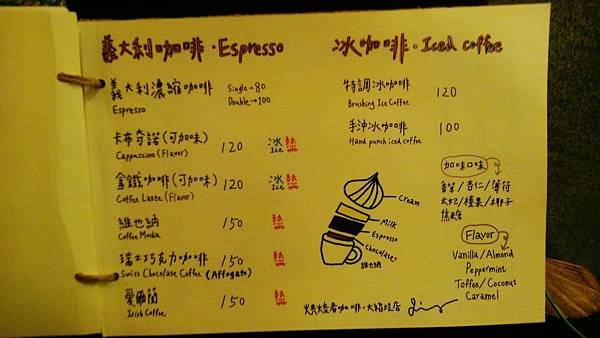 義大利咖啡・Espresso
義大利濃縮咖啡 Single→80
Espresso Double→100
卡布奇諾(可加味) 120 冰 熱
Cappussino (Flavor) Ice
拿鐵咖啡(可加味) 120 冰 熱
Coffee Laste (Flavor) Ice
維也納 150 熱
Coffee Mocha
瑞士巧克力咖啡 150 熱
Swiss Chocolate Coffee (Affogato)
愛爾蘭 150 熱
Irish Coffee
冰咖啡・Iced coffee
特調冰咖啡 120
Brushing Ice Coffee
手沖冰咖啡 100
Hand punch iced coffee
Cream
Milk
Espresso
Chocolate?
維也納
加味口味
香草/杏仁/薄荷
太妃/榛果/椰子
焦糖
Flavor
Vanilla/Almond
Peppermint
Toffee/Coconut
Caramel
烘焙者咖啡・大稻埕店